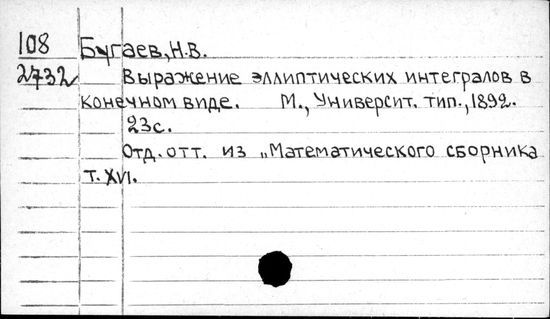 108 Бугаев, Н.В.
2732 Выражение эллиптических интегралов в
конечном виде. М., Университ. тип., 1892.
23с.
Отд. отт. из „Математического сборника
т. XVI.